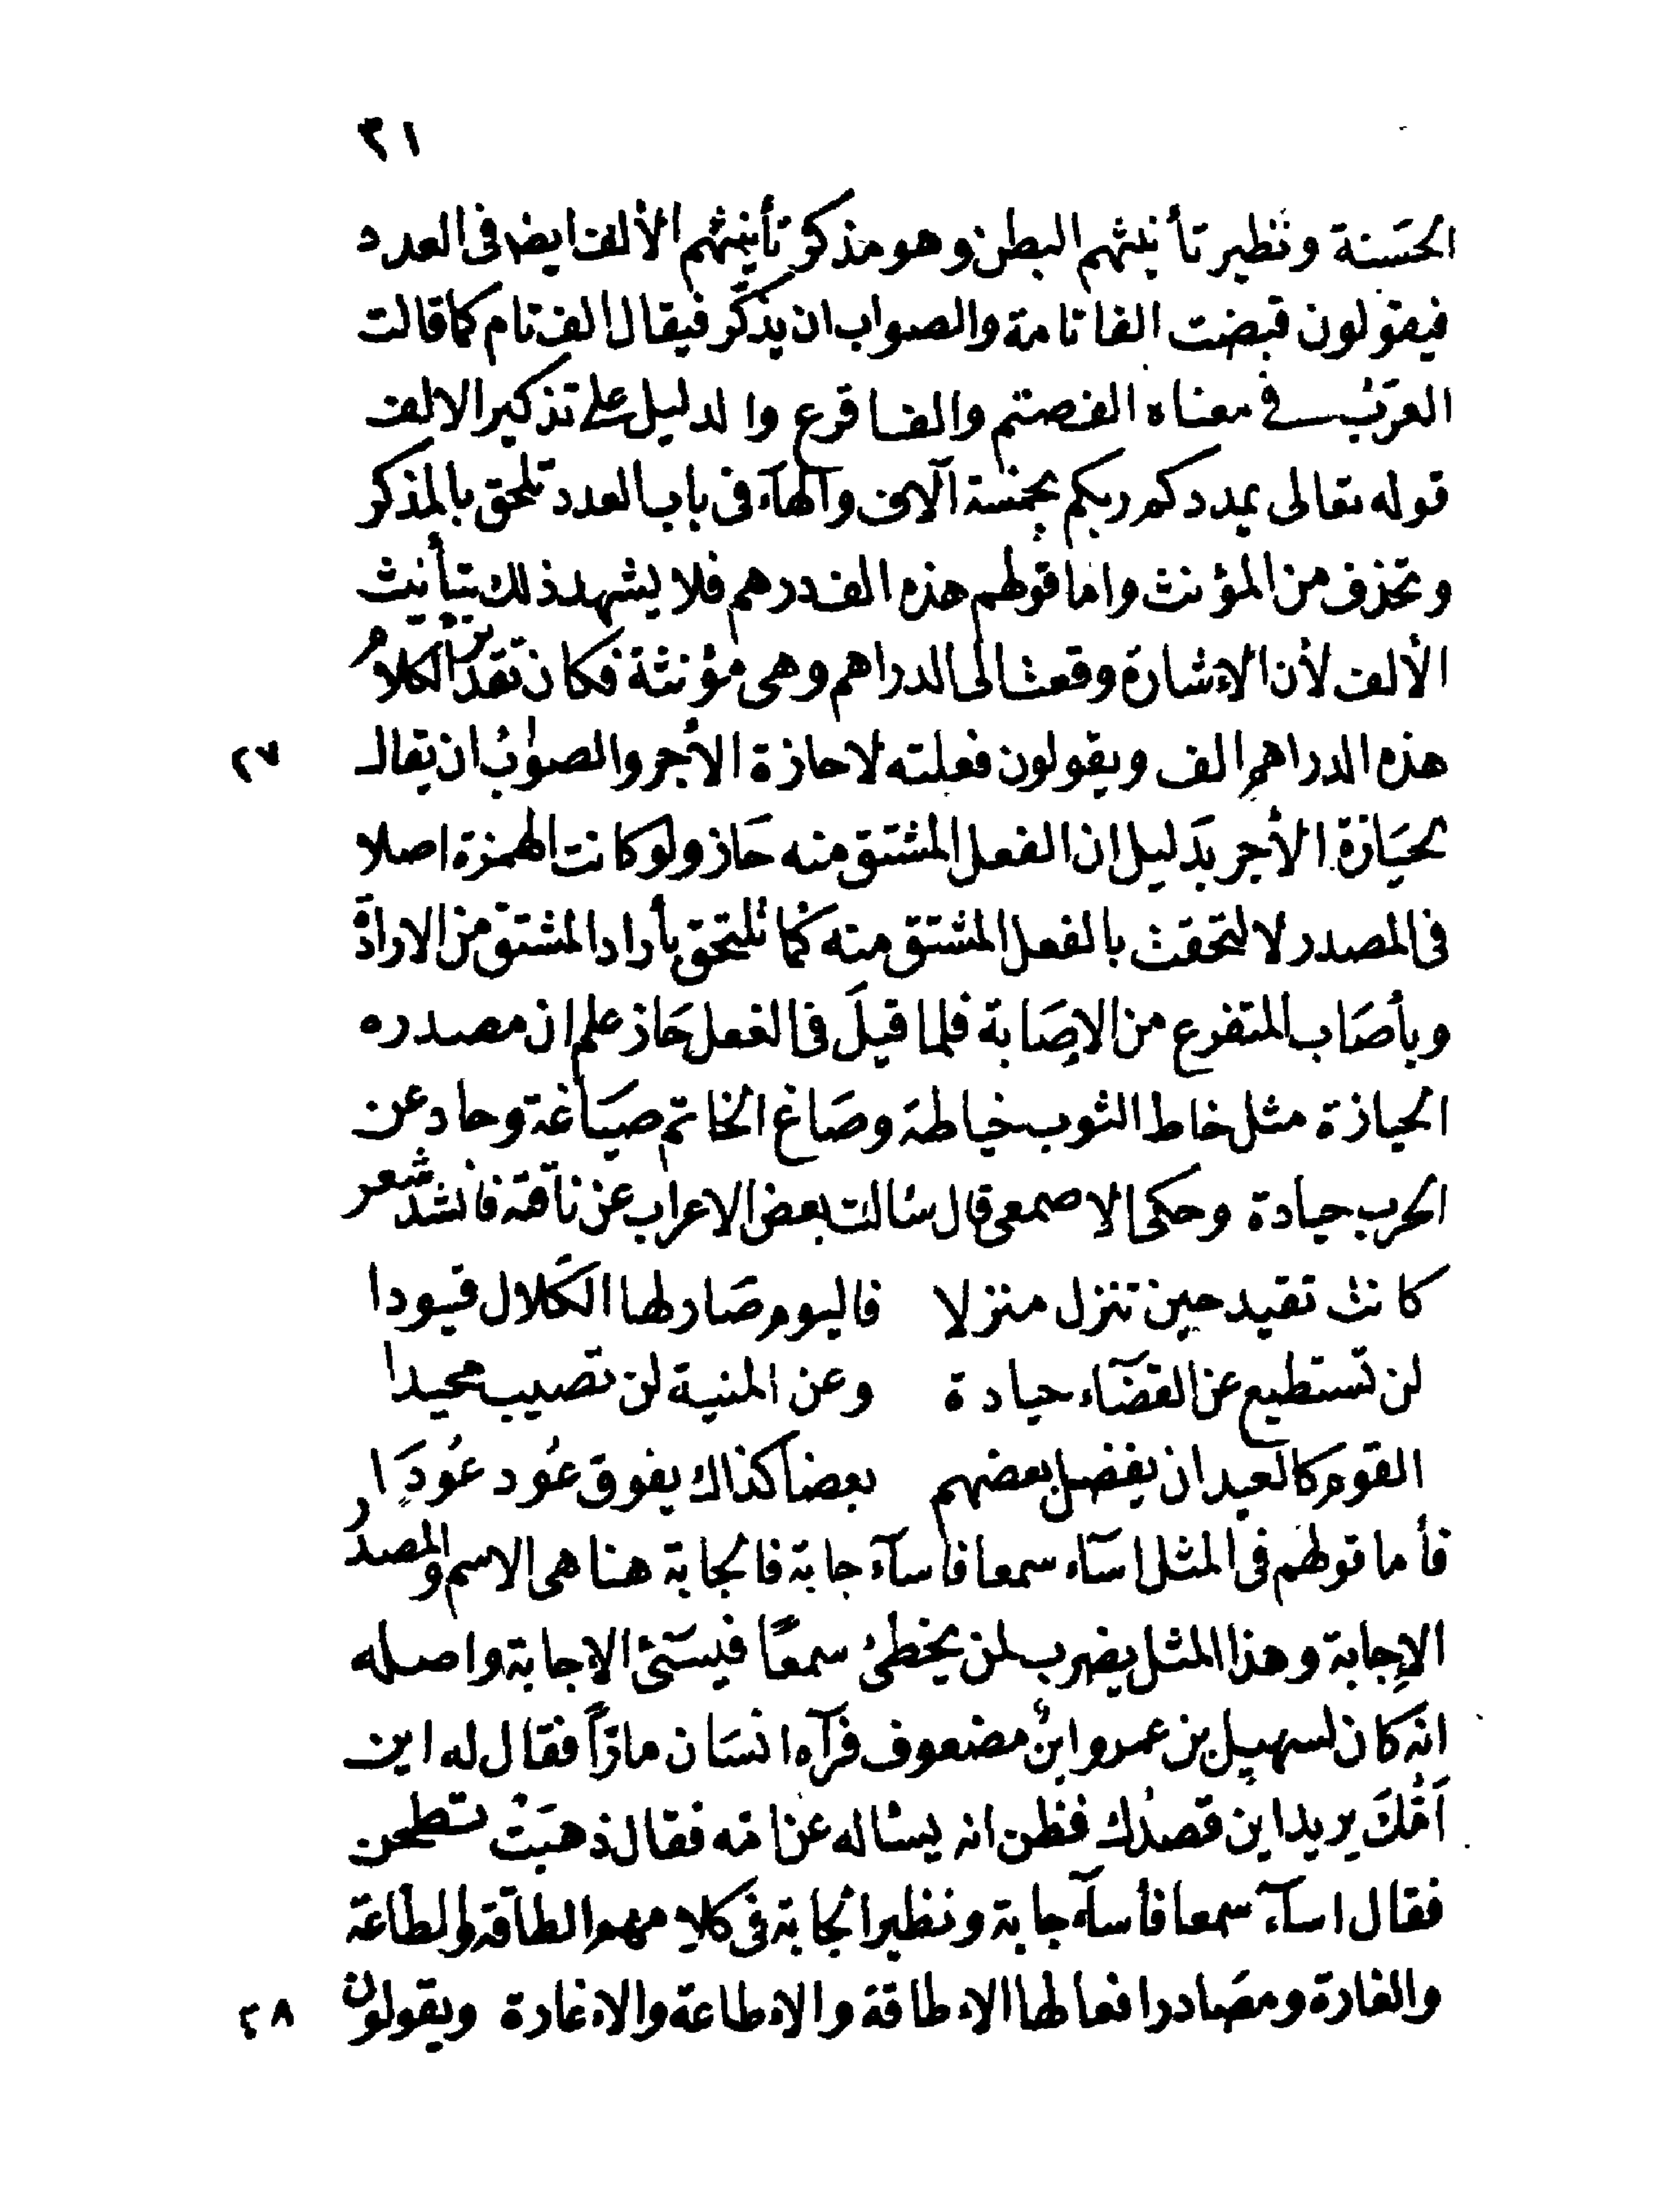 ٣١
الحسَنة ونظير تأنيثهم البطن وهو مذكر تأنيثهم الألف ايضا فى العدد
فيقولون قبضت الفا تامة والصواب ان يذكَّر فيقال الف تام كما قالت
العرَب فى معناه الف صتم والف اقرع والدليل على تذكير الالف
قوله تعالى يمددكم ربكم بخمسة آلاف والهآء فى باب العدد تلحق بالمذكر
وتحذف من المؤنث واما قولهم هذه الف درهم فلا يشهد ذلك بتأنيث
الألف لأن الإشارة وقعت الى الدراهم وهى مؤنثة فكان تقدير الكلام
هذه الدراهم الف ويقولون فعلته لاحازة الأجر والصواب ان يقال ٢٧
لحيَازة الأجر بدَليل ان الفعل المشتق منه حَاز ولو كانت الهمزة اصلا
فى المصدر لالتحقت بالفعل المشتق منه كما تلتحق بأراد المشتق من الارادة
وبأصَاب المتفرع من الإصَابة فلما قيلَ فى الفعل حَاز علم ان مصدره
الحيازة مثل خاط الثوب خياطة وصَاغ الخاتم صيَاغة وحاد عن
الحرب حيادة وحكى الاصمعى قال سالت بعض الاعراب عن ناقة فانشد شعر
كانت تقيد حين تنزل منزلا فاليوم صَار لها الكَلال قيودا
لن تستطيع عن القضَآء حيادة وعن المنية لن تصيب محيدا
القوم كالعيدان يفضل بعضهم بعضا كذاك يفوق عُود عُودَا
فأما قولهم فى المثل اسآء سمعا فاسآء جابة فالجابة هنا هى الاسم والمصدر
الإجابة وهذا المثل يضرب لمن يخطئ سمعًا فيسَئ الإجابة واصله
انه كان لسهيل بن عمرو ابنٌ مضعوف فرآه انسَان مارّاً فقال له اين
اَمُّكَ يريد اين قصدُك فظن انه يساله عن امه فقال ذهبَتْ تطحن
فقال اسآء سمعا فأسآء جابة ونظير الجابة فى كلامهم الطاقة والطاعَة
والغارة ومصَادر افعالها الاطاقة والاطاعة والاغارة ويقولون ٢٨